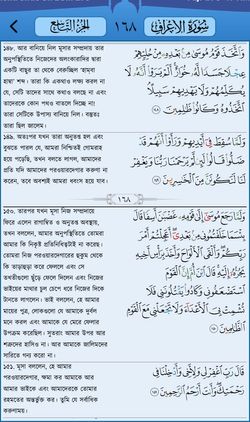 سُورَةُ الْأَعْرَافِ
١٦٨
الجزء التاسع
১৪৮. আর বানিয়ে নিল মূসার সম্প্রদায় তার
অনুপস্থিতিতে নিজেদের অলংকারাদির দ্বারা
একটি বাছুর তা থেকে বেরুচ্ছিল 'হাম্বা
হাম্বা' শব্দ। তারা কি একথাও লক্ষ্য করল না
যে, সেটি তাদের সাথে কথাও বলছে না এবং
তাদেরকে কোন পথও বাতলে দিচ্ছে না!
তারা সেটিকে উপাস্য বানিয়ে নিল। বস্তুতঃ
তারা ছিল জালেম।
وَاتَّخَذَ قَوْمُ مُوسَىٰ مِنْ بَعْدِهِ مِنْ حُلِيِّهِمْ
عِجْلًا جَسَدًا لَهُ خُوَارٌ أَلَمْ يَرَوْا أَنَّهُ لَا
يُكَلِّمُهُمْ وَلَا يَهْدِيهِمْ سَبِيلًا
اتَّخَذُوهُ وَكَانُوا ظَالِمِينَ
১৪৯. অতঃপর যখন তারা অনুতপ্ত হল এবং
বুঝতে পারল যে, আমরা নিশ্চিতই গোমরাহ
হয়ে পড়েছি, তখন বলতে লাগল, আমাদের
প্রতি যদি আমাদের পরওয়ারদেগার করুণা না
করেন, তবে অবশ্যই আমরা ধবংস হয়ে যাব।
وَلَمَّا سُقِطَ فِي أَيْدِيهِمْ وَرَأَوْا أَنَّهُمْ قَدْ
ضَلُّوا قَالُوا لَئِنْ لَمْ يَرْحَمْنَا رَبُّنَا وَيَغْفِرْ
لَنَا لَنَكُونَنَّ مِنَ الْخَاسِرِينَ
١٦٨
১৫০. তারপর যখন মূসা নিজ সম্প্রদায়ে
ফিরে এলেন রাগান্বিত ও অনুতপ্ত অবস্থায়,
তখন বললেন, আমার অনুপস্থিতিতে তোমরা
আমার কি নিকৃষ্ট প্রতিনিধিত্বটাই না করেছ।
তোমরা নিজ পরওয়ারদেগারের হুকুম থেকে
কি তাড়াহুড়া করে ফেললে এবং সে
তখতীগুলো ছুঁড়ে ফেলে দিলেন এবং নিজের
ভাইয়ের মাথার চুল চেপে ধরে নিজের দিকে
টানতে লাগলেন। ভাই বললেন, হে আমার
মায়ের পুত্র, লোকগুলো যে আমাকে দুর্বল
মনে করল এবং আমাকে যে মেরে ফেলার
উপক্রম করেছিল। সুতরাং আমার উপর আর
শত্রুদের হাসিও না। আর আমাকে জালিমদের
সারিতে গন্য করো না।
وَلَمَّا رَجَعَ مُوسَىٰ إِلَىٰ قَوْمِهِ غَضْبَانَ أَسِفًا قَالَ
بِئْسَمَا خَلَفْتُمُونِي مِنْ بَعْدِي أَعَجِلْتُمْ أَمْرَ
رَبِّكُمْ وَأَلْقَى الْأَلْوَاحَ وَأَخَذَ بِرَأْسِ أَخِيهِ
يَجُرُّهُ إِلَيْهِ قَالَ ابْنَ أُمَّ إِنَّ الْقَوْمَ
اسْتَضْعَفُونِي وَكَادُوا يَقْتُلُونَنِي فَلَا
تُشْمِتْ بِيَ الْأَعْدَاءَ وَلَا تَجْعَلْنِي مَعَ الْقَوْمِ
الظَّالِمِينَ
১৫১. মূসা বললেন, হে আমার
পরওয়ারদেগার, ক্ষমা কর আমাকে আর
আমার ভাইকে এবং আমাদেরকে তোমার
রহমতের অন্তর্ভুক্ত কর। তুমি যে সর্বাধিক
করুণাময়।
قَالَ رَبِّ اغْفِرْ لِي وَلِأَخِي وَأَدْخِلْنَا فِي
رَحْمَتِكَ وَأَنْتَ أَرْحَمُ الرَّاحِمِينَ